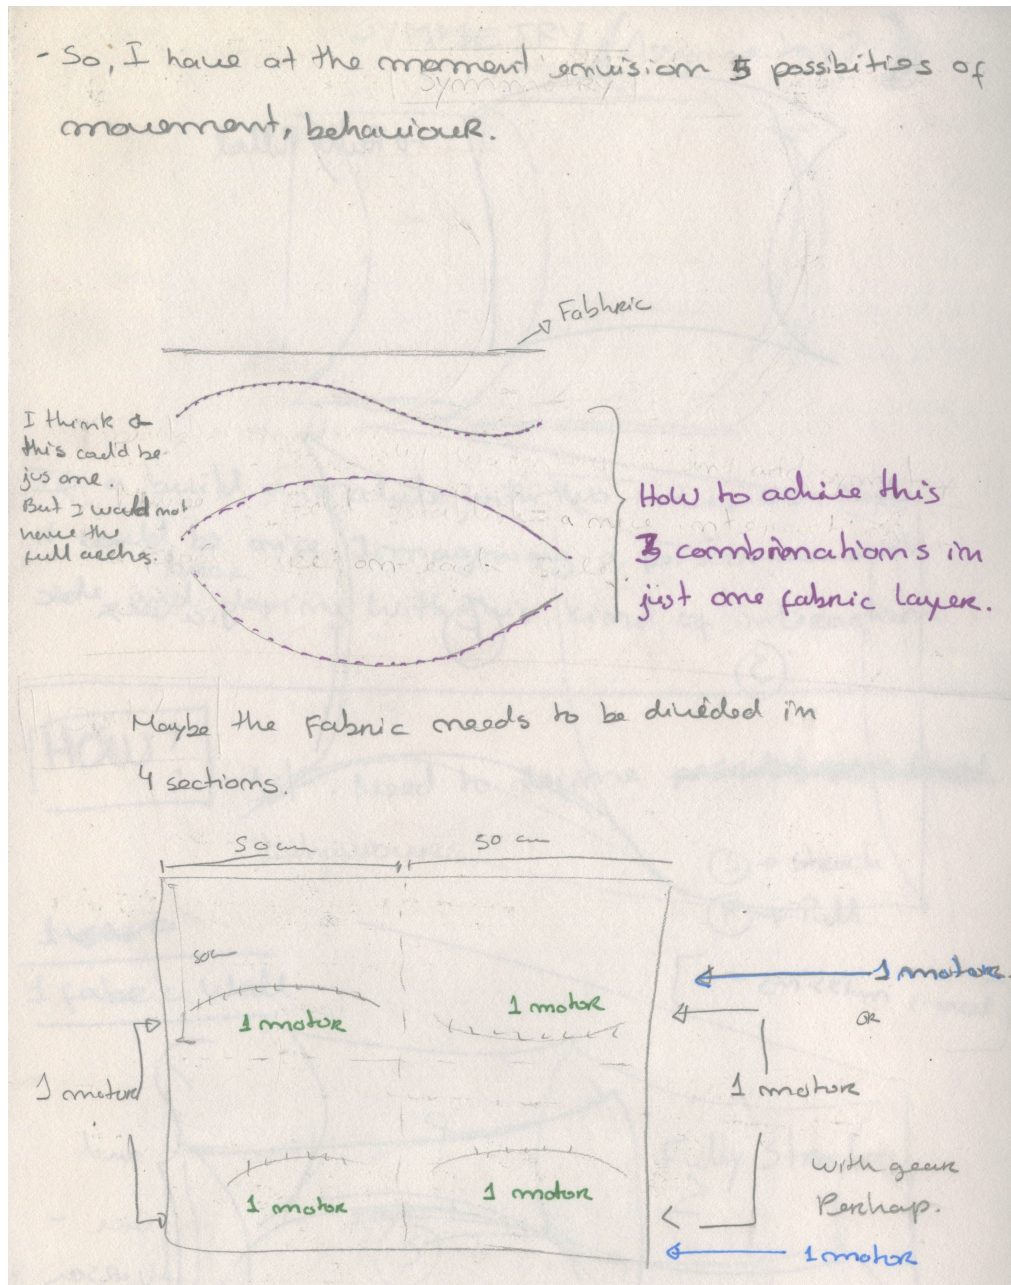 - So, I have at the moment envision 5 possibities of
movement, behaviour.
Fabhric
I think
this could be
jus one.
But I would not
have the
full arches.
How to achive this
3 combinations in
just one fabric layer.
Maybe the Fabric needs to be divided in
4 sections.
50 cm
50 cm
50cm
1 motor
1 motor
1 motor
OR
1 motor
1 motor
1 motor
1 motor
with gear
Perhap.
1 motor